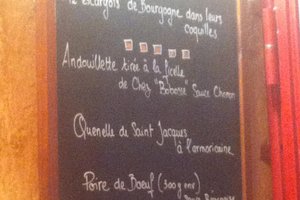 12 escargots de Bourgogne dans leurs
coquilles
Andouillette tirée à la ficelle
de Chez "Bobosse" Sauce Chinon
Quenelle de Saint Jacques
à l'armoricaine
Poire de Boeuf (300g env)